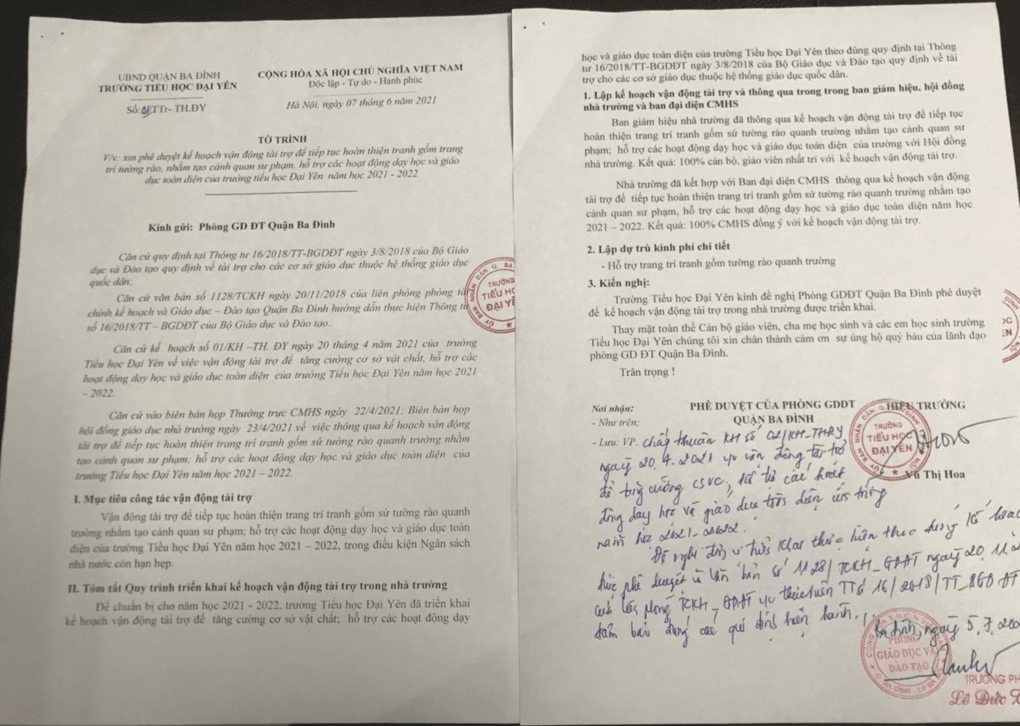 UBND QUẬN BA ĐÌNH
TRƯỜNG TIỂU HỌC ĐẠI YÊN
CỘNG HÒA XÃ HỘI CHỦ NGHĨA VIỆT NAM
Độc lập - Tự do - Hạnh phúc
Số: /TTr- TH.ĐY
Hà Nội, ngày 07 tháng 6 năm 2021
TỜ TRÌNH
V/v: xin phê duyệt kế hoạch vận động tài trợ để tiếp tục hoàn thiện tranh gốm trang
trí tường rào, nhằm tạo cảnh quan sư phạm, hỗ trợ các hoạt động dạy học và giáo
dục toàn diện của trường tiểu học Đại Yên năm học 2021 - 2022
Kính gửi: Phòng GD ĐT Quận Ba Đình
Căn cứ quy định tại Thông tư 16/2018/TT-BGDĐT ngày 3/8/2018 của Bộ Giáo
dục và Đào tạo quy định về tài trợ cho các cơ sở giáo dục thuộc hệ thống giáo dục
quốc dân;
Căn cứ văn bản số 1128/TCKH ngày 20/11/2018 của liên phòng phòng tài
chính kế hoạch và Giáo dục – Đào tạo Quận Ba Đình hướng dẫn thực hiện Thông tư
số 16/2018/TT – BGDĐT của Bộ Giáo dục và Đào tạo.
Căn cứ kế hoạch số 01/KH –TH. ĐY ngày 20 tháng 4 năm 2021 của trường
Tiểu học Đại Yên về việc vận động tài trợ để tăng cường cơ sở vật chất, hỗ trợ các
hoạt động dạy học và giáo dục toàn diện của trường Tiểu học Đại Yên năm học 2021
– 2022.
Căn cứ vào biên bản họp Thường trực CMHS ngày 22/4/2021; Biên bản họp
hội đồng giáo dục nhà trường ngày 23/4/2021 về việc thông qua kế hoạch vận động
tài trợ để tiếp tục hoàn thiện tranh trí tranh gốm sứ tường rào quanh trường nhằm
tạo cảnh quan sư phạm; hỗ trợ các hoạt động dạy học và giáo dục toàn diện của
trường Tiểu học Đại Yên năm học 2021 – 2022.
I. Mục tiêu công tác vận động tài trợ
Vận động tài trợ để tiếp tục hoàn thiện trang trí tranh gốm sứ tường rào quanh
trường nhằm tạo cảnh quan sư phạm; hỗ trợ các hoạt động dạy học và giáo dục toàn
diện của trường Tiểu học Đại Yên năm học 2021 – 2022, trong điều kiện Ngân sách
nhà nước còn hạn hẹp.
II. Tóm tắt Quy trình triển khai kế hoạch vận động tài trợ trong nhà trường
Để chuẩn bị cho năm học 2021 - 2022, trường Tiểu học Đại Yên đã triển khai
kế hoạch vận động tài trợ để tăng cường cơ sở vật chất; hỗ trợ các hoạt động dạy
học và giáo dục toàn diện của trường Tiểu học Đại Yên theo đúng quy định tại Thông
tư 16/2018/TT-BGDĐT ngày 3/8/2018 của Bộ Giáo dục và Đào tạo quy định về tài
trợ cho các cơ sở giáo dục thuộc hệ thống giáo dục quốc dân.
1. Lập kế hoạch vận động tài trợ và thông qua trong trong ban giám hiệu, hội đồng
nhà trường và ban đại diện CMHS
Ban giám hiệu nhà trường đã thông qua kế hoạch vận động tài trợ để tiếp tục
hoàn thiện trang trí tranh gốm sứ tường rào quanh trường nhằm tạo cảnh quan sư
phạm; hỗ trợ các hoạt động dạy học và giáo dục toàn diện của trường với Hội đồng
nhà trường. Kết quả: 100% cán bộ, giáo viên nhất trí với kế hoạch vận động tài trợ.
Nhà trường đã kết hợp với Ban đại diện CMHS thông qua kế hoạch vận động
tài trợ để tiếp tục hoàn thiện trang trí tranh gốm sứ tường rào quanh trường nhằm tạo
cảnh quan sư phạm, hỗ trợ các hoạt động dạy học và giáo dục toàn diện năm học
2021 – 2022. Kết quả: 100% CMHS đồng ý với kế hoạch vận động tài trợ.
2. Lập dự trù kinh phí chi tiết
- Hỗ trợ trang trí tranh gốm tường rào quanh trường
3. Kiến nghị:
Trường Tiểu học Đại Yên kính đề nghị Phòng GDĐT Quận Ba Đình phê duyệt
để kế hoạch vận động tài trợ trong nhà trường được triển khai.
Thay mặt toàn thể Cán bộ giáo viên, cha mẹ học sinh và các em học sinh trường
Tiểu học Đại Yên chúng tôi xin chân thành cảm ơn sự ủng hộ quý báu của lãnh đạo
phòng GD ĐT Quận Ba Đình.
Trân trọng !
Nơi nhận:
- Như trên;
- Lưu: VP.
PHÊ DUYỆT CỦA PHÒNG GDĐT
QUẬN BA ĐÌNH
HIỆU TRƯỞNG
TRƯỜNG
TIỂU HỌC
ĐẠI YÊN
Vũ Thị Hoa
Chấp thuận KH số 01/KH-THĐY
ngày 20.4.2021 v/v vận động tài trợ
để tăng cường CSVC, hỗ trợ các hoạt
động dạy học và giáo dục toàn diện
năm học 2021-2022.
Đề nghị đơn vị triển khai thực hiện theo đúng kế hoạch
được phê duyệt và văn bản số 1128/TCKH-GDĐT ngày 20.11.20
của liên phòng TCKH-GDĐT v/v thực hiện TT số 16/2018/TT-BGDĐT
đảm bảo đúng các qui định hiện hành.
Ba Đình, ngày 5.7.20
PHÒNG
GIÁO DỤC VÀ
ĐÀO TẠO
TRƯỞNG PH
Lê Đức